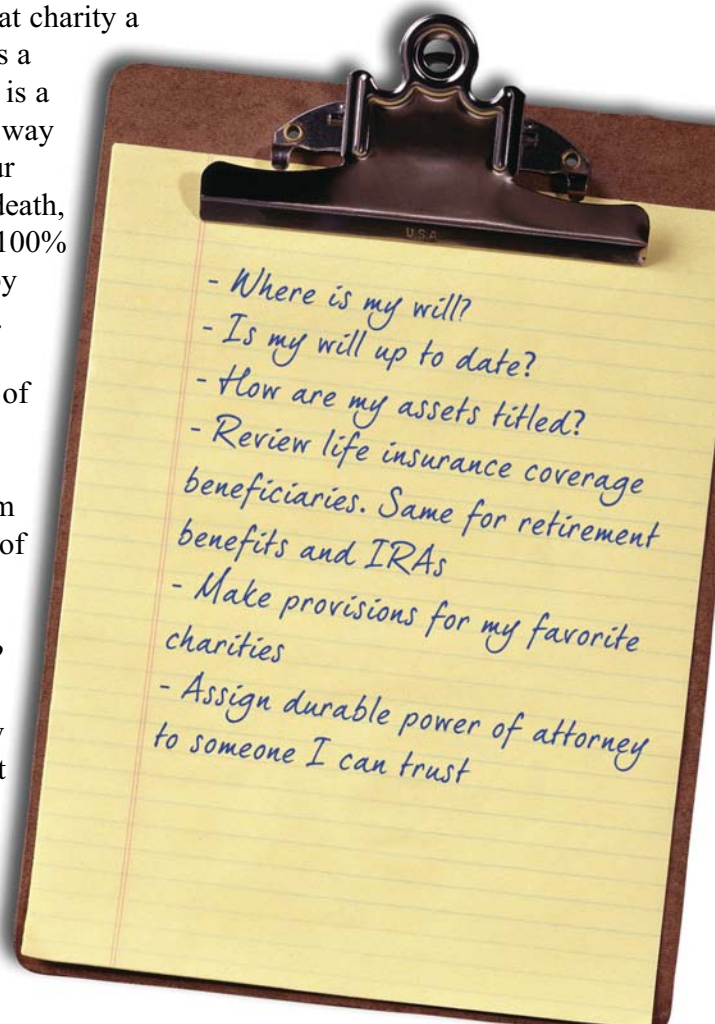 at charity a
s a
is a
way
ur
death,
100%
by
.
of
m
of
?
y
t
U.S.A.
- Where is my will?
- Is my will up to date?
- How are my assets titled?
- Review life insurance coverage
beneficiaries. Same for retirement
benefits and IRAs
- Make provisions for my favorite
charities
- Assign durable power of attorney
to someone I can trust